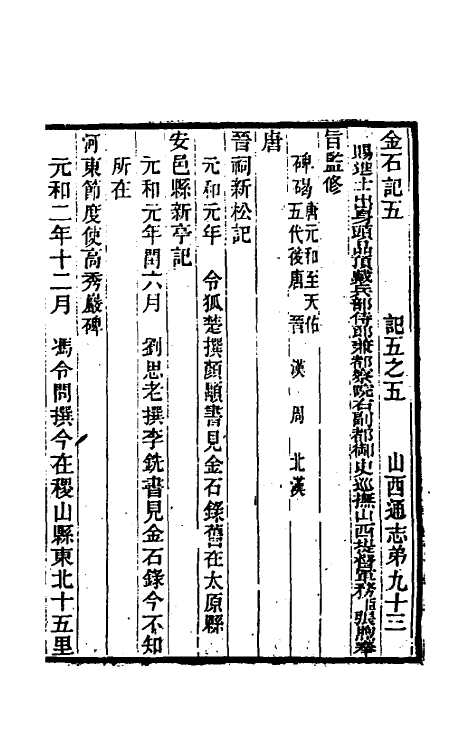 金石記五 記五之五 山西通志弟九十三
賜進士出身頭品頂戴兵部侍郎兼都察院右副都御史巡撫山西提督軍務臣張煦奉
旨監修
碑碣 唐元和至天佑
五代後唐 晉 漢 周 北漢
唐
晉祠新松記
元和元年 令狐楚撰顏顒書見金石錄舊在太原縣
安邑縣新亭記
元和元年閏六月 劉思老撰李銑書見金石錄今不知
所在
河東節度使高秀巖碑
元和二年十二月 馮令問撰今在稷山縣東北十五里